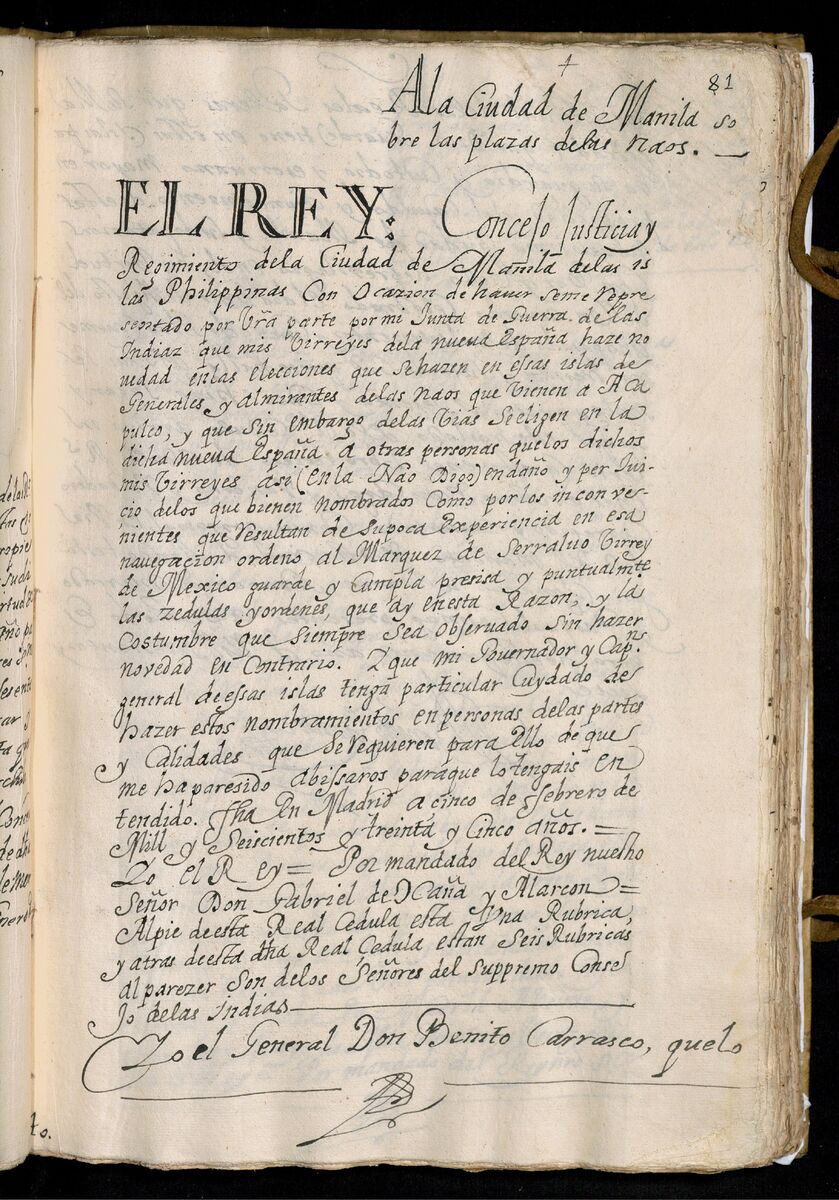 81
A la Ciudad de Manila so
bre las plazas delas naos.
EL REY: Concejo Justicia y
Regimiento dela Ciudad de Manila delas is
las Philippinas Con ocazion de haver seme repre
sentado por Vrã parte por mi Junta de Guerra de las
Indiaz que mis Virreyes dela nueva España haze no
vedad enlas elecciones que se hazen en essas islas de
Generales y Almirantes delas naos que vienen a Aca
pulco, y que sin embargo delas Vias Se eligen en la
dicha nueva España à otras personas quelos dichos
mis Virreyes asi (en la Nao Digo) en daño y per Jui-
cio delos que bienen nombrados como por los in conve-
nientes que resultan de su poca experiencia en esa
navegacion ordeno al Marquez de Serraluo Virrey
de Mexico guarde y Cumpla presisa y puntualmte
las zedulas y ordenes, que ay en esta Razon, y la
Costumbre que siempre sea observado sin hazer
novedad en Contrario. Y que mi Governador y Capn
general de essas islas tenga particular Cuydado de
hazer estos nombramientos en personas delas partes
y Calidades que se requieren para ello de que
me ha paresido abissaros para que lo tengais en
tendido. fha en Madrid a cinco de ffebrero de
Mill y Seiscientos y treinta y Cinco años. =
Yo el Rey = Por mandado del Rey nuestro
Señor Don Gabriel de Ocaña y Alarcon =
Al pie de esta Real Cedula esta Vna Rubrica,
y atras de esta dha Real Cedula estan Seis Rubricas
al parezer son delos Señores del suppremo Conse
Jo delas indias
Yo el General Don Benito Carrasco, quelo